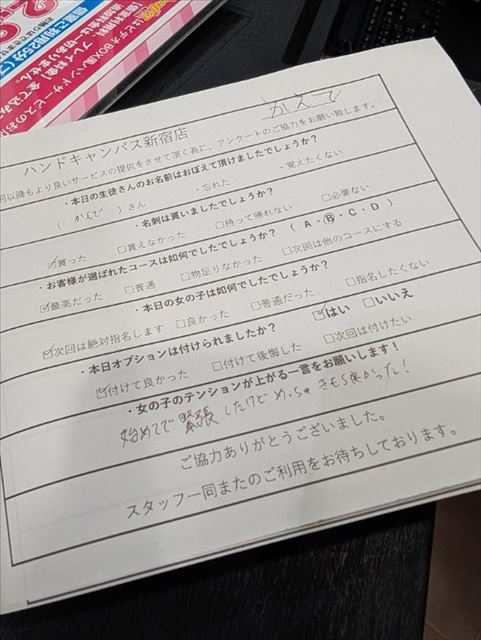 かえで
ハンドキャンパス新宿店
回以降もより良いサービスの提供をさせて頂く為に、アンケートのご協力をお願い致します。
・本日の生徒さんのお名前はおぼえて頂けましたでしょうか？
( かえで )さん ・忘れた ・覚えたくない
・名刺は貰いましたでしょうか？
☑貰った □貰えなかった □持って帰れない □必要ない
・お客様が選ばれたコースは如何でしたでしょうか？ ( A・Ⓑ・C・D )
☑最高だった □普通 □物足りなかった □次回は他のコースにする
・本日の女の子は如何でしたでしょうか？
☑次回は絶対指名します □良かった □普通だった □指名したくない
・本日オプションは付けられましたか？ ☑はい □いいえ
☑付けて良かった □付けて後悔した □次回は付けたい
・女の子のテンションが上がる一言をお願いします！
始めてで緊張したけどめっちゃきもち良かった！
ご協力ありがとうございました。
スタッフ一同またのご利用をお待ちしております。